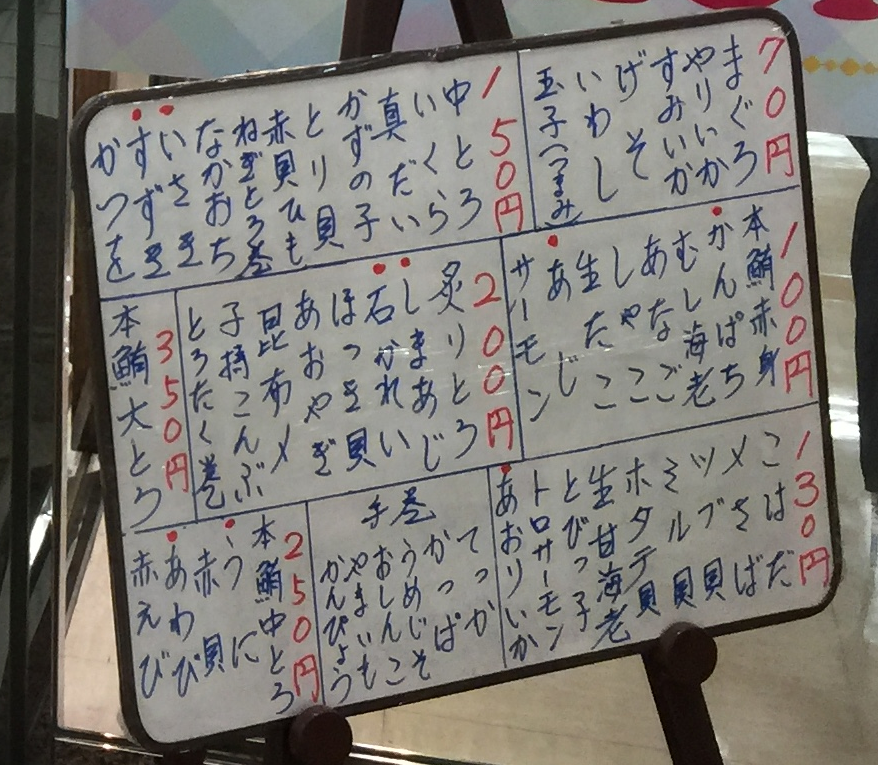 70円
まぐろ
やりいか
すみいか
げそ
いわし
玉子(つまみ)
100円
本鮪赤身
かんぱち
むし海老
あなご
しゃこ
生たこ
あじ
サーモン
130円
こはだ
〆さば
ツブ貝
ミル貝
ホタテ貝
生甘海老
とびっ子
トロサーモン
あおりいか
150円
中とろ
いくら
真だい
かずの子
とり貝
赤貝ひも
ねぎとろ巻
なかおち
いさき
すずき
かつを
200円
炙りとろ
しまあじ
石がれい
ほっき貝
あおやぎ
昆布〆
子持こんぶ
とろたく巻
手巻
てっか
かっぱ
うめじそ
おしんこ
やまいも
かんぴょう
350円
本鮪大とろ
250円
本鮪中とろ
うに
赤貝
あわび
赤えび